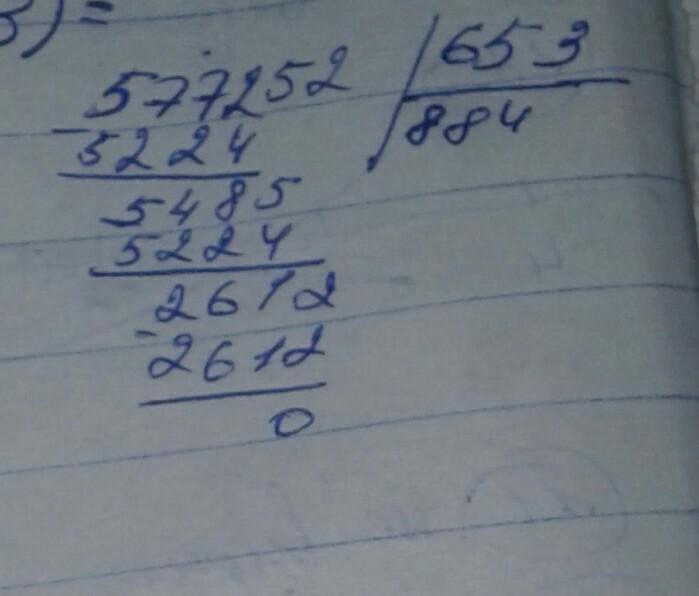 3) =
577252 | 653
- 5224 884
5485
5224
2612
- 2612
0